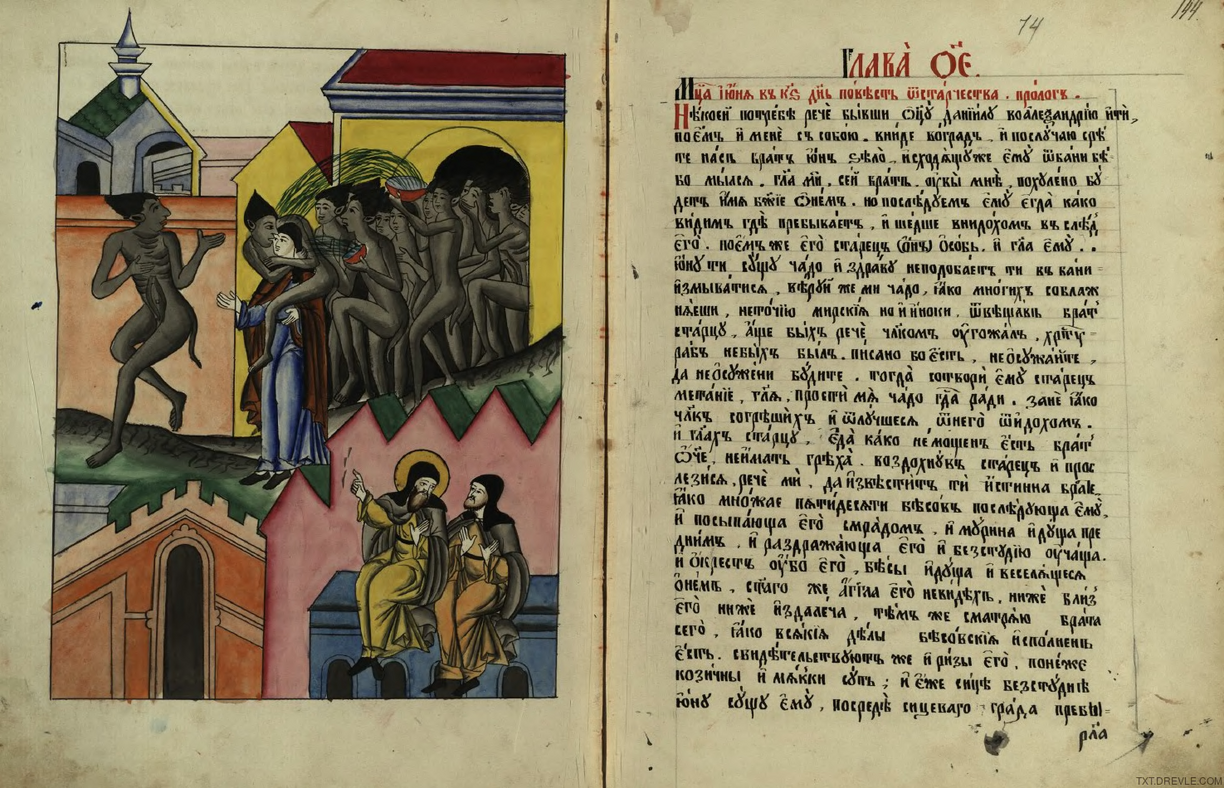 144
74
Глава̀ ѻ҃е.
Мц҃а і҆ю́нѧ въ к҃ѕ дн҃ь повѣ́сть ѿста́рчества. проло́гъ.
Нѣ́коей потре́бѣ речѐ бы́вши ѻ҆ц҃у̀ данїи́лу воалеѯандрі́ю и҆тѝ,
пое́мъ, и҆ менѐ съ собо́ю. вни́де вогра́дъ, и҆ послу́чаю срѣ́
те на́съ бра́тъ ю҆́нъ ѕѣлѡ̀, и҆сходѧ́щу же є҆мꙋ̀ ѿба́ни бѣ́
бо мы́лсѧ. гл҃а мѝ, се́й бра́тъ, ѹ҆вы̀ мнѣ̀, поху́лено бу́
детъ и҆́мѧ бж҃їе ѻ҆не́мъ. но послѣ́дуемъ є҆мꙋ̀ є҆гда̀ ка́ко
ви́димъ гдѣ̀ пребыва́етъ, и҆ ше́дше внидо́хомъ въ слѣ́д
є҆гѡ̀. пое́мъ же є҆гѡ̀ ста́рецъ ѻ҆со́бь. и҆ гл҃а є҆мꙋ̀..
ю҆́ну ти су́щу ча́до и҆ здра́ву неподоба́етъ ти въ ба́ни
и҆змыва́тисѧ, вѣ́руй же ми ча́до, ꙗ҆́ко мно́гихъ соблаж
нѧ́еши, нето́чїю мирскі́ѧ но и҆ и҆́ноки. ѿвѣща́въ бра́т
ста́рцу, а҆́ще бы́хъ речѐ чл҃комъ ѹ҆гожа́лъ, хрⷭ҇ту̀
ра́бъ небы́хъ бы́лъ. пи́сано бо є҆́сть, не ѻ҆сужда́йте,
да не ѻ҆сужде́ни бу́дите. тогда̀ сотворѝ є҆мꙋ̀ ста́рецъ
мета́нїе, гл҃ѧ, простѝ мѧ̀ ча́до гд҃а ра́ди. занѐ ꙗ҆́ко
чл҃къ согрѣши́хъ и҆ ѿлучше́сѧ ѿнегѡ̀ ѿидо́хомъ.
и҆ гл҃ахъ ста́рцу, є҆да̀ ка́ко не́мощенъ є҆́сть бра́т
ѻ҆́ч҃е, неи҆́мать грѣха̀. воздохну́въ ста́рецъ и҆ прос
лези́сѧ, речѐ мѝ, да и҆звѣсти́тъ тѝ и҆́стинна бра́те
ꙗ҆́ко мно́жае пѧтидесѧ́ти бѣсо́въ послѣ́дующа є҆мꙋ̀,
и҆ посыпа́юща є҆гѡ̀ смра́домъ, и҆ му́рина и҆ду́ща пре
дни́мъ. и҆ раздража́юща є҆гѡ̀ и҆ безсту́дїю ѹ҆ча́ща.
и҆ ѻ҆́крестъ ѹ҆́бо є҆гѡ̀, бѣ́сы и҆ду́ща и҆ веселѧ́щесѧ
ѻ҆не́мъ, ст҃а́го же а҆́гг҃ла є҆гѡ̀ неви́дѣхъ, нижѐ бли́з
є҆гѡ̀ нижѐ и҆здале́ча, тѣ́мъ же смотрѧ́ю бра́та
сегѡ̀, ꙗ҆́ко всѧ́кїѧ дѣ́лы бѣсо́вскїѧ и҆спо́лненъ
є҆́сть. свидѣ́тельствуютъ же и҆ ри́зы є҆гѡ̀, поне́же
кози́чны и҆ мѧ́кки су́ть; и҆ є҆́же си́цѣ безсту́днѣ
ю҆́ну су́щу є҆мꙋ̀, посредѣ̀ си́цеваго гра́да пребы
рл҃а
TXT.DREVLE.COM